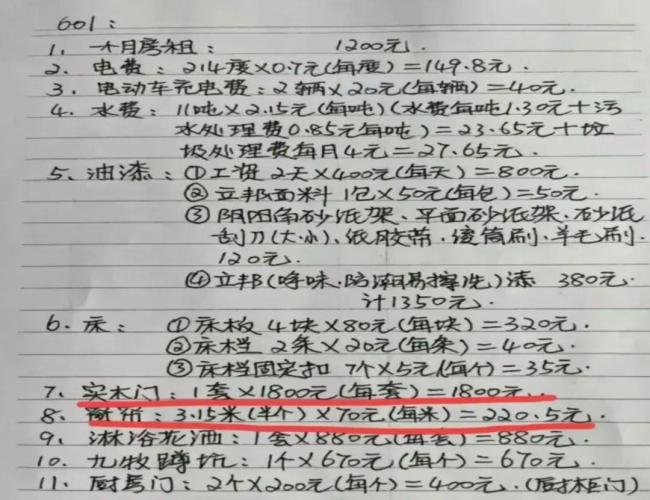 601：
1. 一个月房租： 1200元.
2. 电费：214度×0.7元(每度)=149.8元.
3. 电动车充电费：2辆×20元(每辆)=40元.
4. 水费：11吨×2.15元(每吨)(水费每吨1.30元+污
水处理费0.85元每吨)=23.65元+垃
圾处理费每月4元=27.65元.
5. 油漆：①工资 2天×400元(每天)=800元.
②立邦面料 1包×50元(每包)=50元.
③阴阳角砂纸架、平面砂纸架、砂纸
刮刀(大小)、纸胶带、滚筒刷、羊毛刷.
120元.
④立邦(净味.防潮易擦洗)漆 380元
计1350元.
6. 床：①床板 4块×80元(每块)=320元.
②床档 2条×20元(每条)=40元.
③床档固定扣 7个×5元(每个)=35元.
7. 实木门：1套×1800元(每套)=1800元.
8. 窗帘：3.15米(半个)×70元(每米)=220.5元.
9. 淋浴花洒：1套×880元(每套)=880元.
10. 九牧蹲坑：1个×670元(每个)=670元.
11. 厨房门：2个×200元(每个)=400元.(厨柜门)